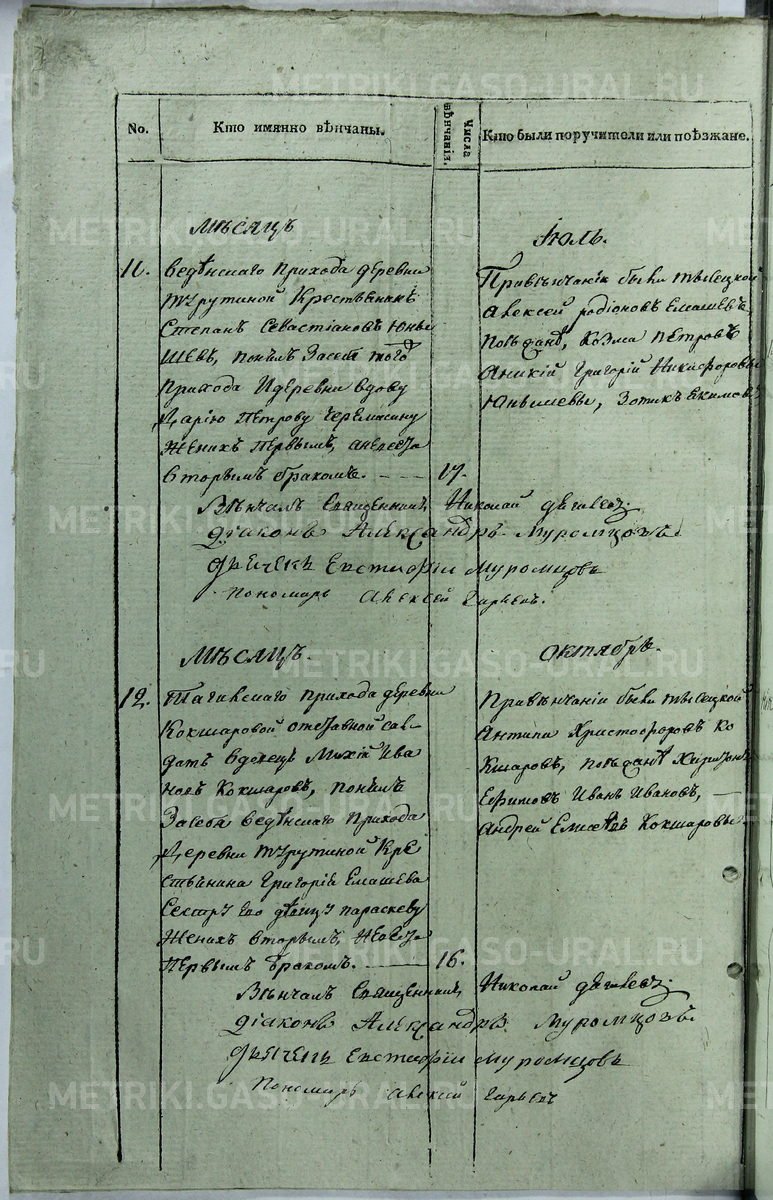 No.
Кто имянно вѣнчаны.
Числа вѣнчанія.
Кто были поручители или поѣзжане.
Мѣсяцъ
Іюль.
11. Веденскаго прихода деревни
крестьянинъ
Степанъ Севастіановъ Юны
шевъ, понялъ засебя того
прихода идеревни вдову
Дарію Петрову
Женихъ первымъ, аневеста
вторымъ бракомъ. 17.
Привѣнчаніи были тысецкой
Алексей родіоновъ Емашевъ
поезданѣ, Козма Петровъ
Аникій Григорій Никифоровы
Юнышевы, Зотикъ Екимовъ
Вѣнчалъ Священникъ Николай
Діаконъ Александръ Муромцовъ.
Дьячекъ Евстафій Муромцовъ
Пономарь Алексей
Мѣсяцъ.
Октябрь.
12. прихода деревни
Кокшаровой отставной сал-
датъ вдовецъ Ива
новъ Кокшаровъ, понялъ
Засебя веденскаго прихода
Деревни кре
стьянина Григорія Емашева
Сестру ево девицу параскеву
Женихъ вторымъ, Невеста
первымъ бракомъ. 16.
Привѣнчаніи были тысецкой
Антипа Христофоровъ Ко
кшаровъ, поезданѣ
Ефимовъ Иванъ Ивановъ,
Андрей Кокшаровы.
Вѣнчалъ Священникъ, Николай
Діаконъ Александръ Муромцовъ.
Дьячекъ Евстафій Муромцовъ
Пономарь Алексей
METRIKI.GASO-URAL.RU